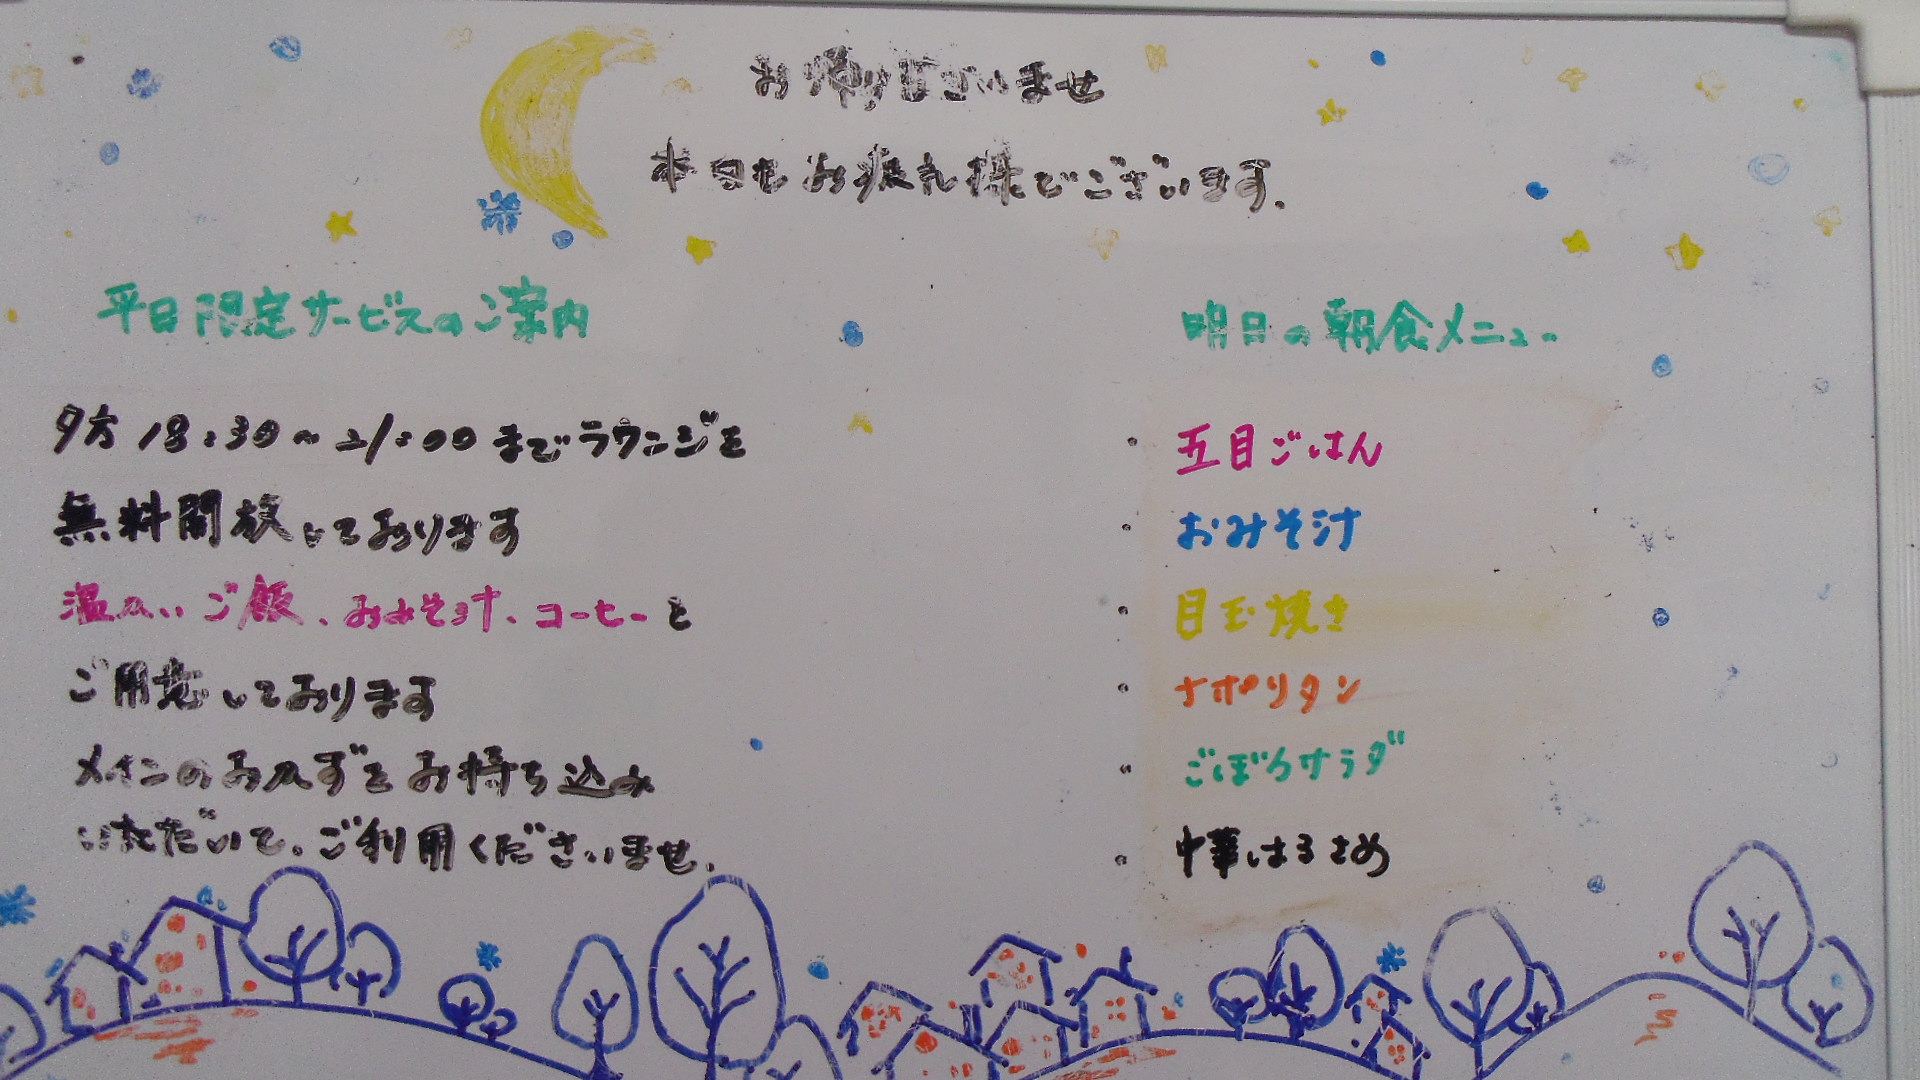 お帰りなさいませ
本日もお疲れ様でございます。
平日限定サービスのご案内
夕方18:30～21:00までラウンジを
無料開放しております
温かいご飯、おみそ汁、コーヒーと
ご用意しております
メインのおかずをお持ち込み
いただいて、ご利用くださいませ。
明日の朝食メニュー
・五目ごはん
・おみそ汁
・目玉焼き
・ナポリタン
・ごぼうサラダ
・中華はるさめ